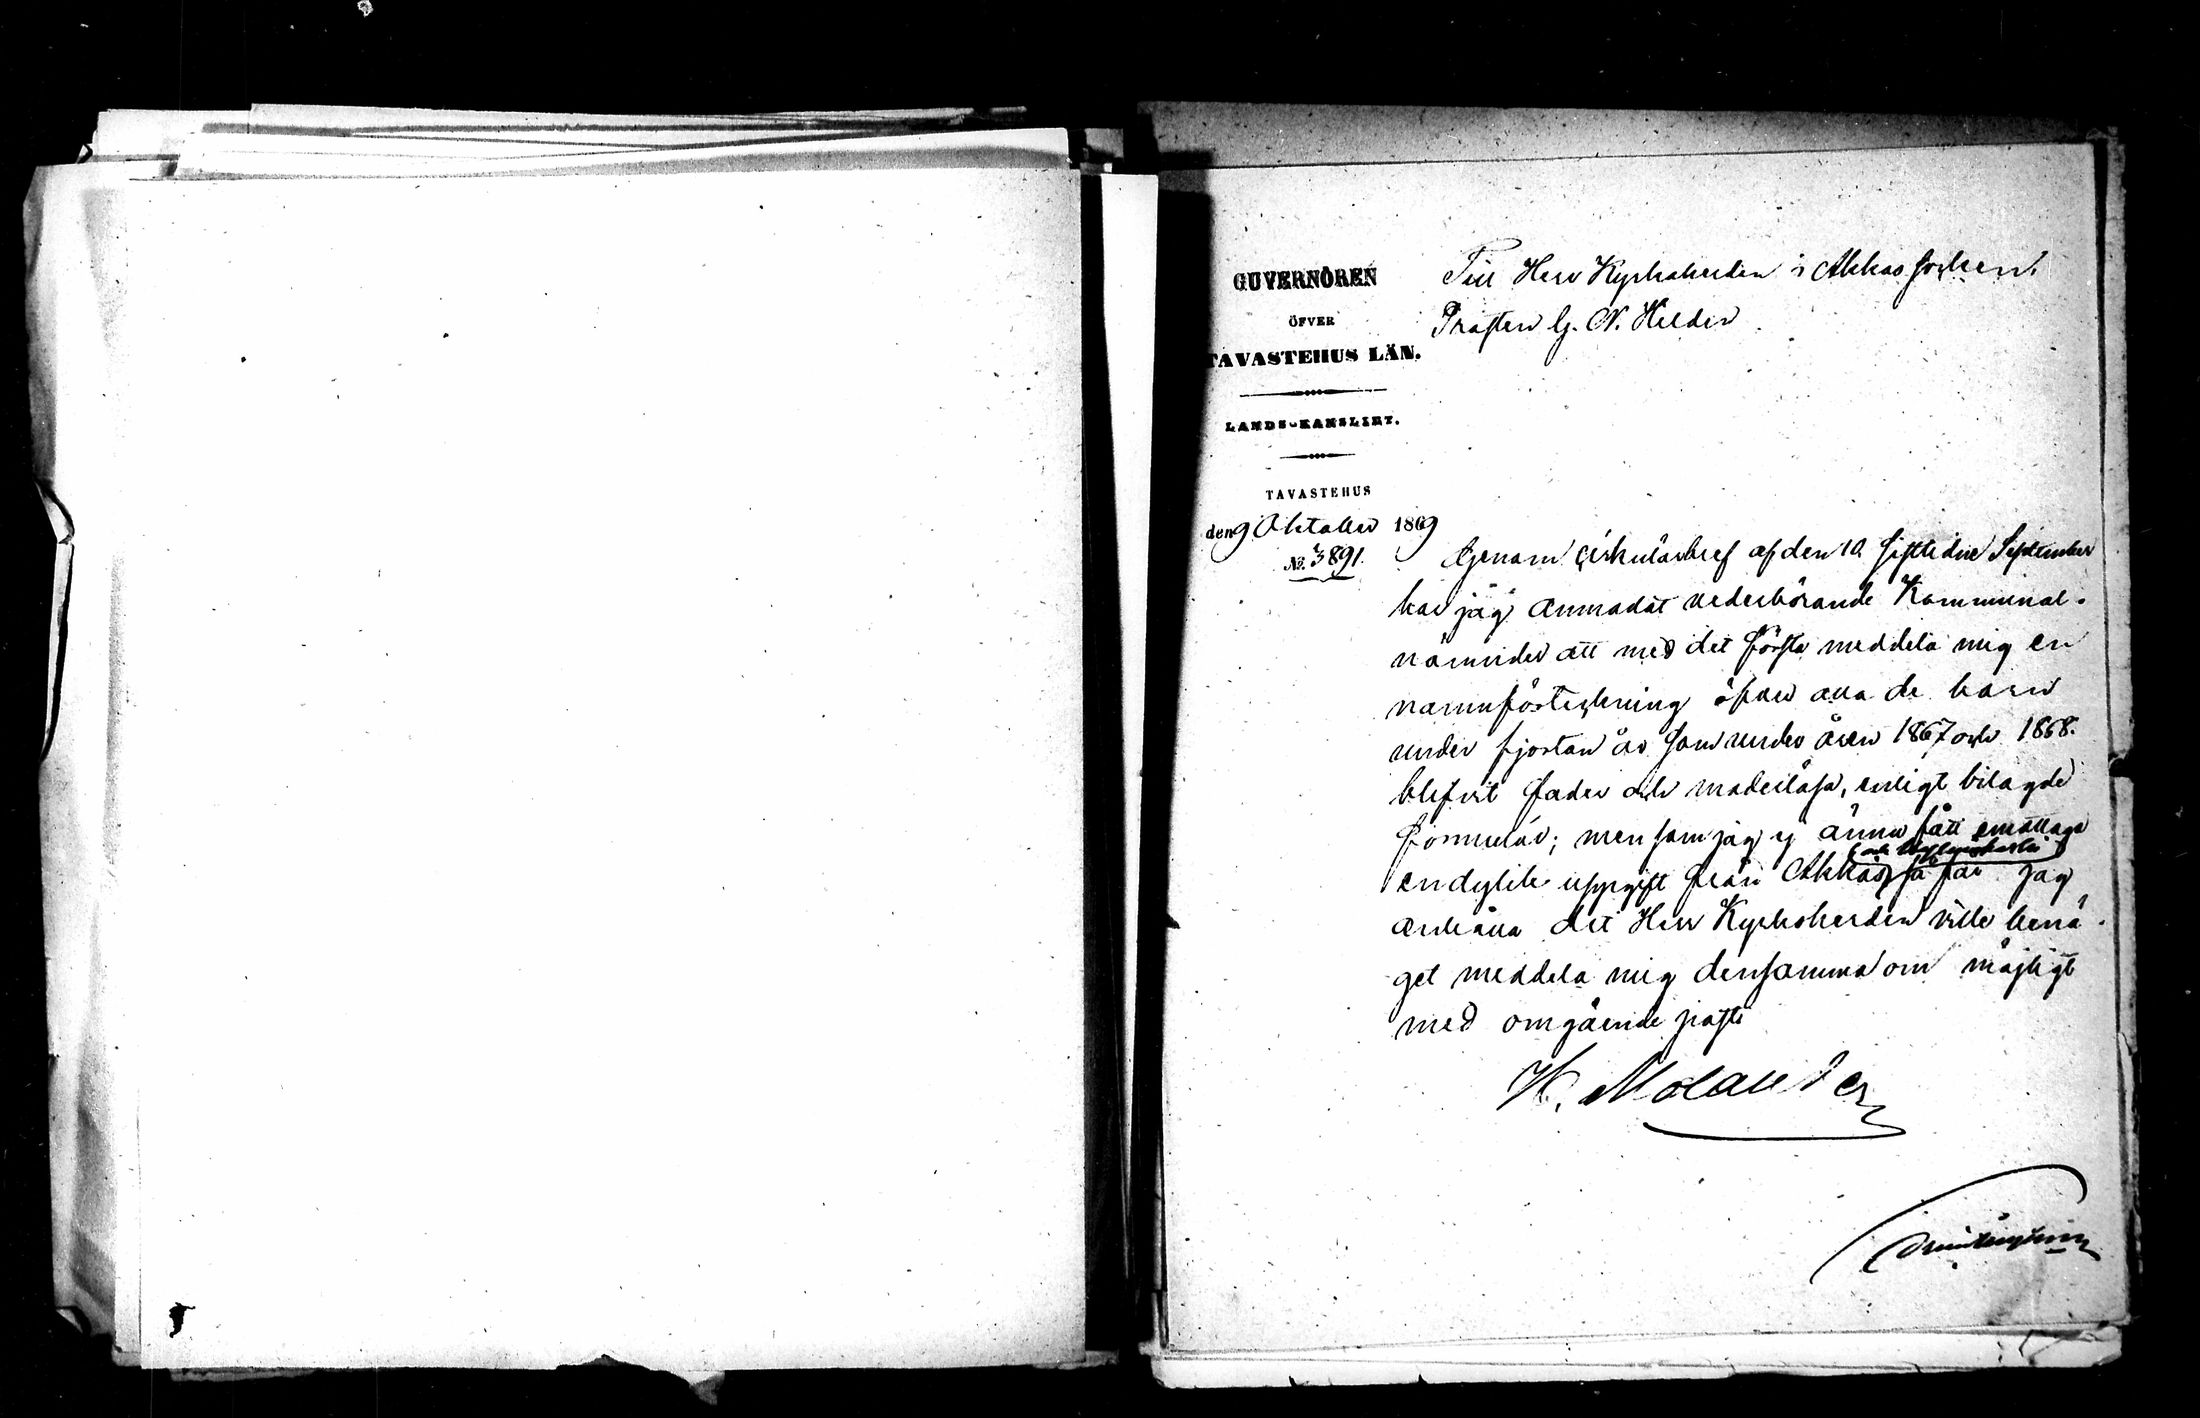 GUVERNÖREN
ÖFVER
TAVASTEHUS LÄN.
LANDS-KANSLIET.
TAVASTEHUS
den 9 Oktober 1869
No. 3891.
Till Herr Kyrkoherden i Akkas socken,
Prosten G. N. Helder
Genom cirkulärbref af den 10 sistledne September
har jag anmodat vederbörande Kommunal-
nämnder att med det första meddela mig en
namnförteckning öfver alla de barn
under fjorton år som under åren 1867 och 1868
blifvit fader och moderlösa, enligt bilagde
formulär; men som jag ej ännu fått emottaga
och
en dylik uppgift från Akkas, så får jag
anhålla det Herr Kyrkoherden ville benä-
get meddela mig densamma om möjligt
med omgående post.
H. Molander